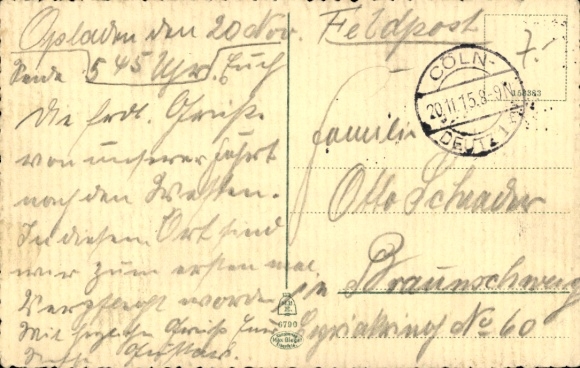 Opladen den 20 Nov.
Sende 5 45 Uhr Euch
die frdl. Grüße
von unserer Fahrt
nach den Westen.
In diesem Ort sind
wir zum ersten mal
Verpflegt worden
Mit Gruß
Gustav.
Feldpost
7.-
CÖLN-
20.11.15.8-9N
DEUTZ
Familie
Otto Schrader
in Braunschweig
No 60
6790